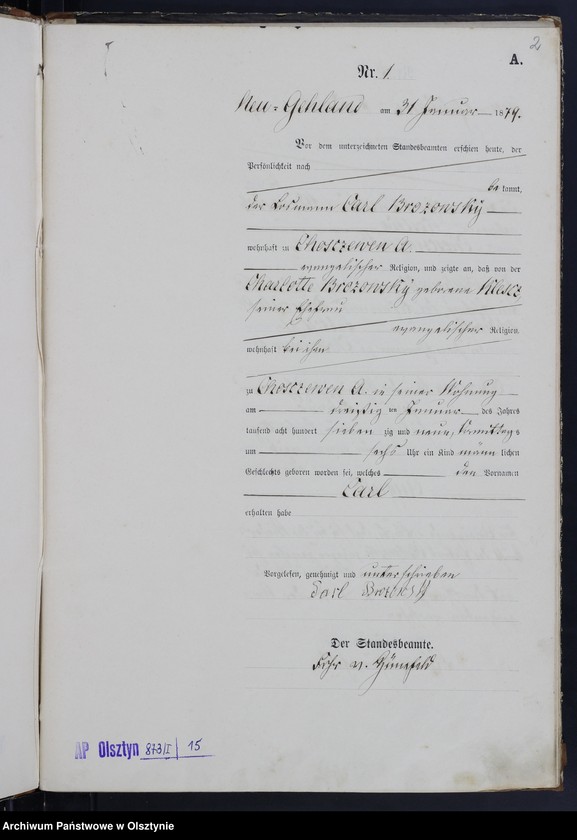 2
A.
Nr. 1.
Neu-Gehland am 31 Januar 1879.
Vor dem unterzeichneten Standesbeamten erschien heute, der
Persönlichkeit nach
bekannt,
der Carl Brozowsky
wohnhaft zu Choszewen A.
evangelischer Religion, und zeigte an, daß von der
Charlotte Brozowsky geborene
seiner Ehefrau
evangelischer Religion,
wohnhaft bei ihm
zu Choszewen A. in seiner Wohnung
am dreißig ten Januar des Jahres
tausend acht hundert sieben zig und neun, Vormittags
um sechs Uhr ein Kind männlichen
Geschlechts geboren worden sei, welches den Vornamen
Carl
erhalten habe
Vorgelesen, genehmigt und unterschrieben
Carl
Der Standesbeamte.
v. Hünefeld
AP Olsztyn 873/I 15
Archiwum Państwowe w Olsztynie